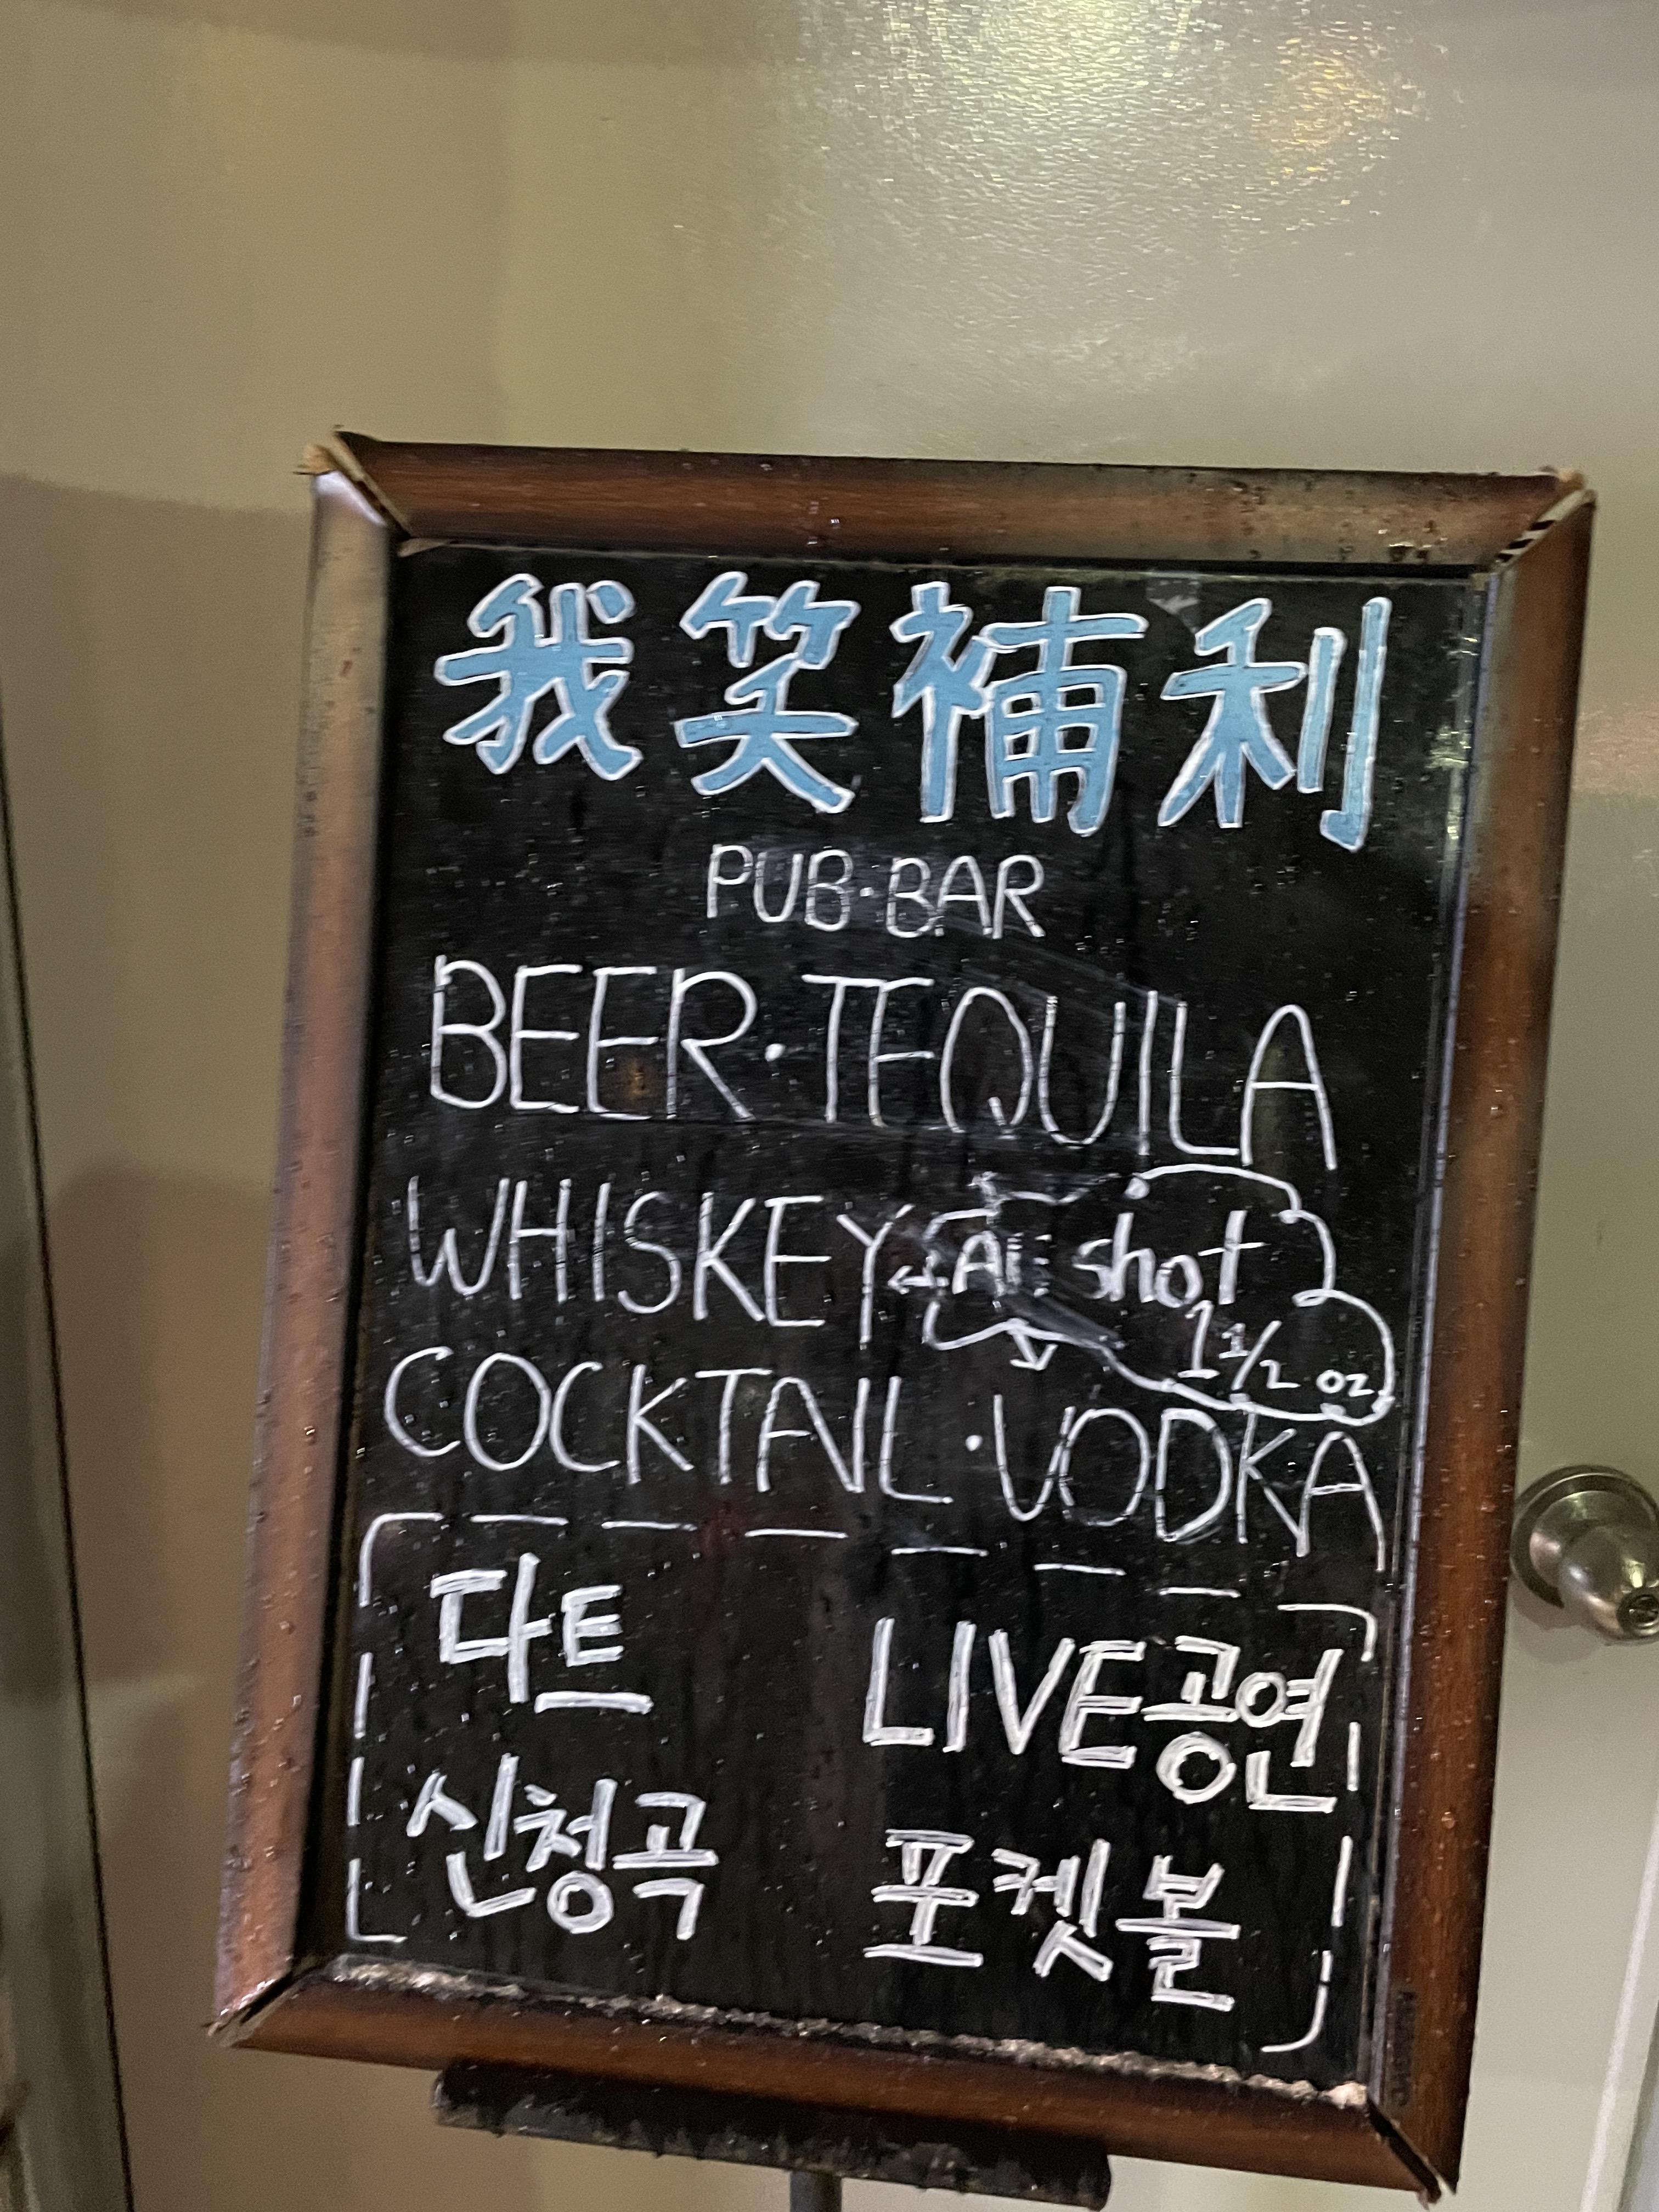 我笑補利
PUB·BAR
BEER·TEQUILA
WHISKEY
shot
1 1/2 oz
COCKTAIL·VODKA
다트 LIVE공연
신청곡 포켓볼